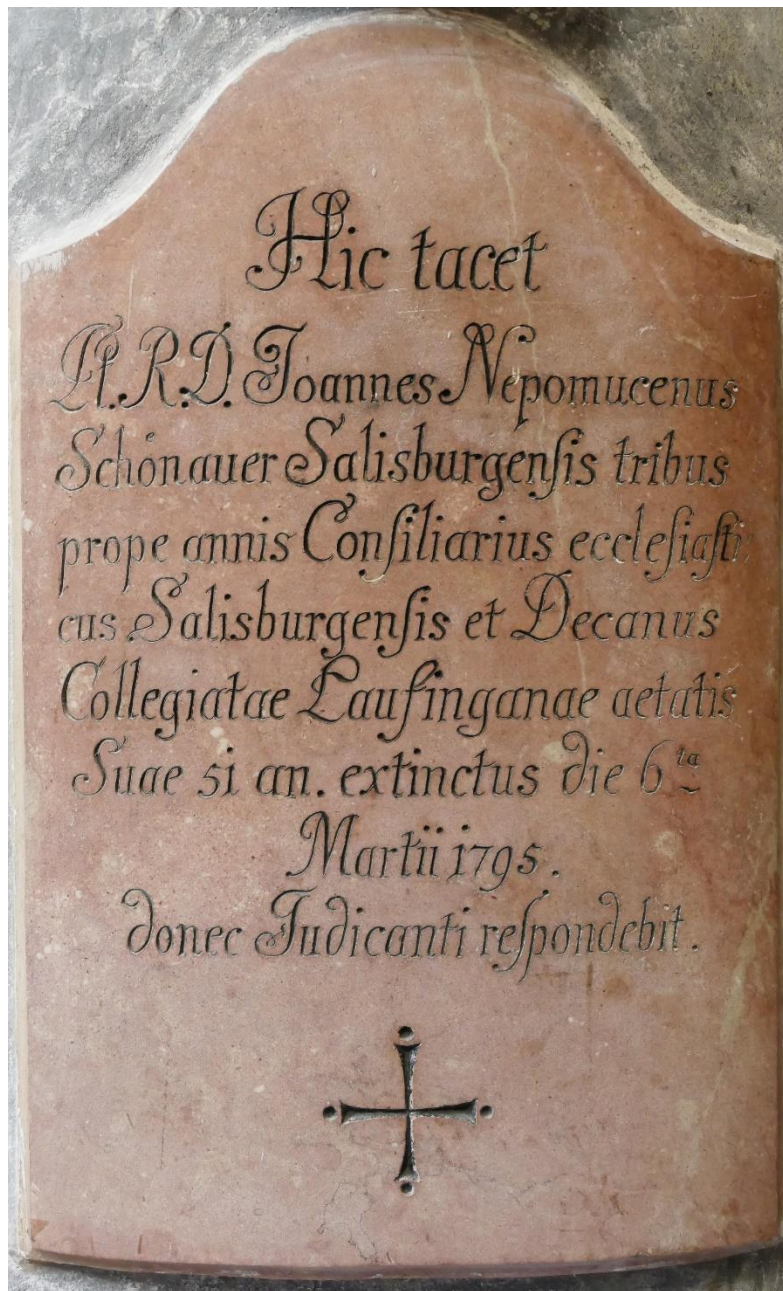 Hic tacet
Pl. R. D. Joannes Nepomucenus
Schönauer Saliſburgenſis tribus
prope annis Conſiliarius eccleſiaſti
cus Saliſburgenſis et Decanus
Collegiatae Laufinganae aetatis
Suae 51 an. extinctus die 6ta
Martii 1795.
donec Judicanti reſpondebit.